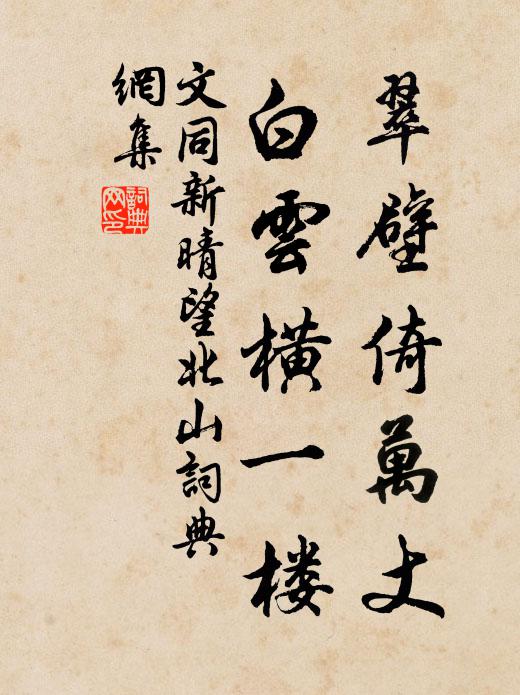 翠壁倚萬丈
白雲橫一楼
文同新晴望北山詞典
網集
詞典
网印